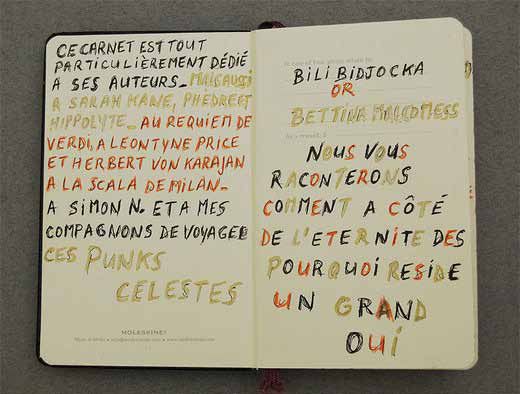 CE CARNET EST TOUT
PARTICULIÈREMENT DÉDIÉ
A SES AUTEURS_ MAIS AUSSI
A SARAH KANE, PHEDRE ET
HIPPOLYTE_ AU REQUIEM DE
VERDI, A LEONTYNE PRICE
ET HERBERT VON KARAJAN
A LA SCALA DE MILAN_
A SIMON N. ET A MES
COMPAGNONS DE VOYAGE
CES PUNKS
CELESTES
MOLESKINE®
In case of loss, please return to:
BILI BIDJOCKA
OR
BETTINA
As a reward: $
NOUS VOUS
RACONTERONS
COMMENT A CÔTÉ
DE L'ETERNITE DES
POURQUOI RESIDE
UN GRAND
OUI